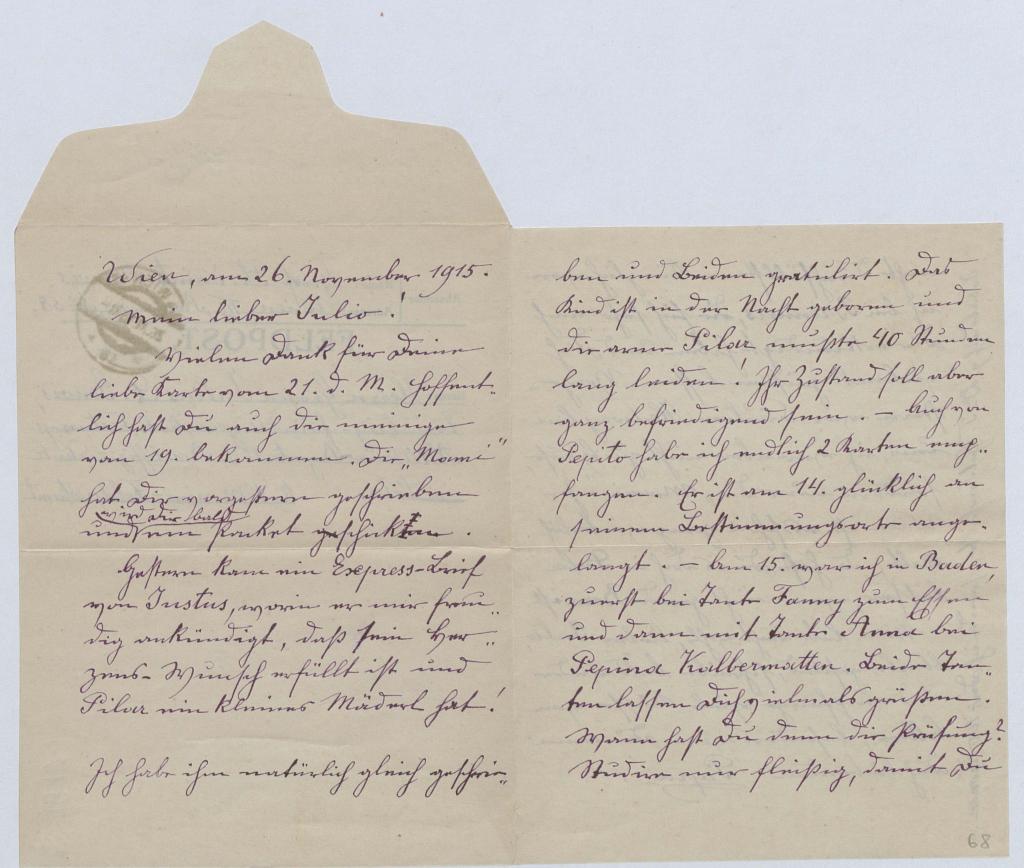 Wien, am 26. November 1915.
Mein lieber Julio!
Vielen Dank für Deine
liebe Karte vom 21. d. M. Hoffent-
lich hast Du auch die meinige
vom 19. bekommen. Die „Mami"
hat Dir vorgestern geschrieben
wird Dir bald
und ein Packet schicken.
Gestern kam ein Exepress-Brief
von Justus, worin er mir freu-
dig ankündigt, daß sein Her-
zens-Wunsch erfüllt ist und
Pilar ein kleines Mäderl hat!
Ich habe ihm natürlich gleich geschrie-
ben und Beiden gratulirt. Das
Kind ist in der Nacht geboren und
die arme Pilar mußte 40 Stunden
lang leiden! Ihr Zustand soll aber
ganz befriedigend sein. – Auch von
Pepito habe ich endlich 2 Karten emp-
fangen. Er ist am 14. glücklich an
seinem Bestimmungsorte ange-
langt. – Am 15. war ich in Baden,
zuerst bei Tante Fanny zum Essen
und dann mit Tante Anna bei
Pepina Kalbermatten. Beide Tan-
ten lassen Dich vielmals grüßen.
Wann hast Du denn die Prüfung?
Studire nur fleißig, damit Du
68